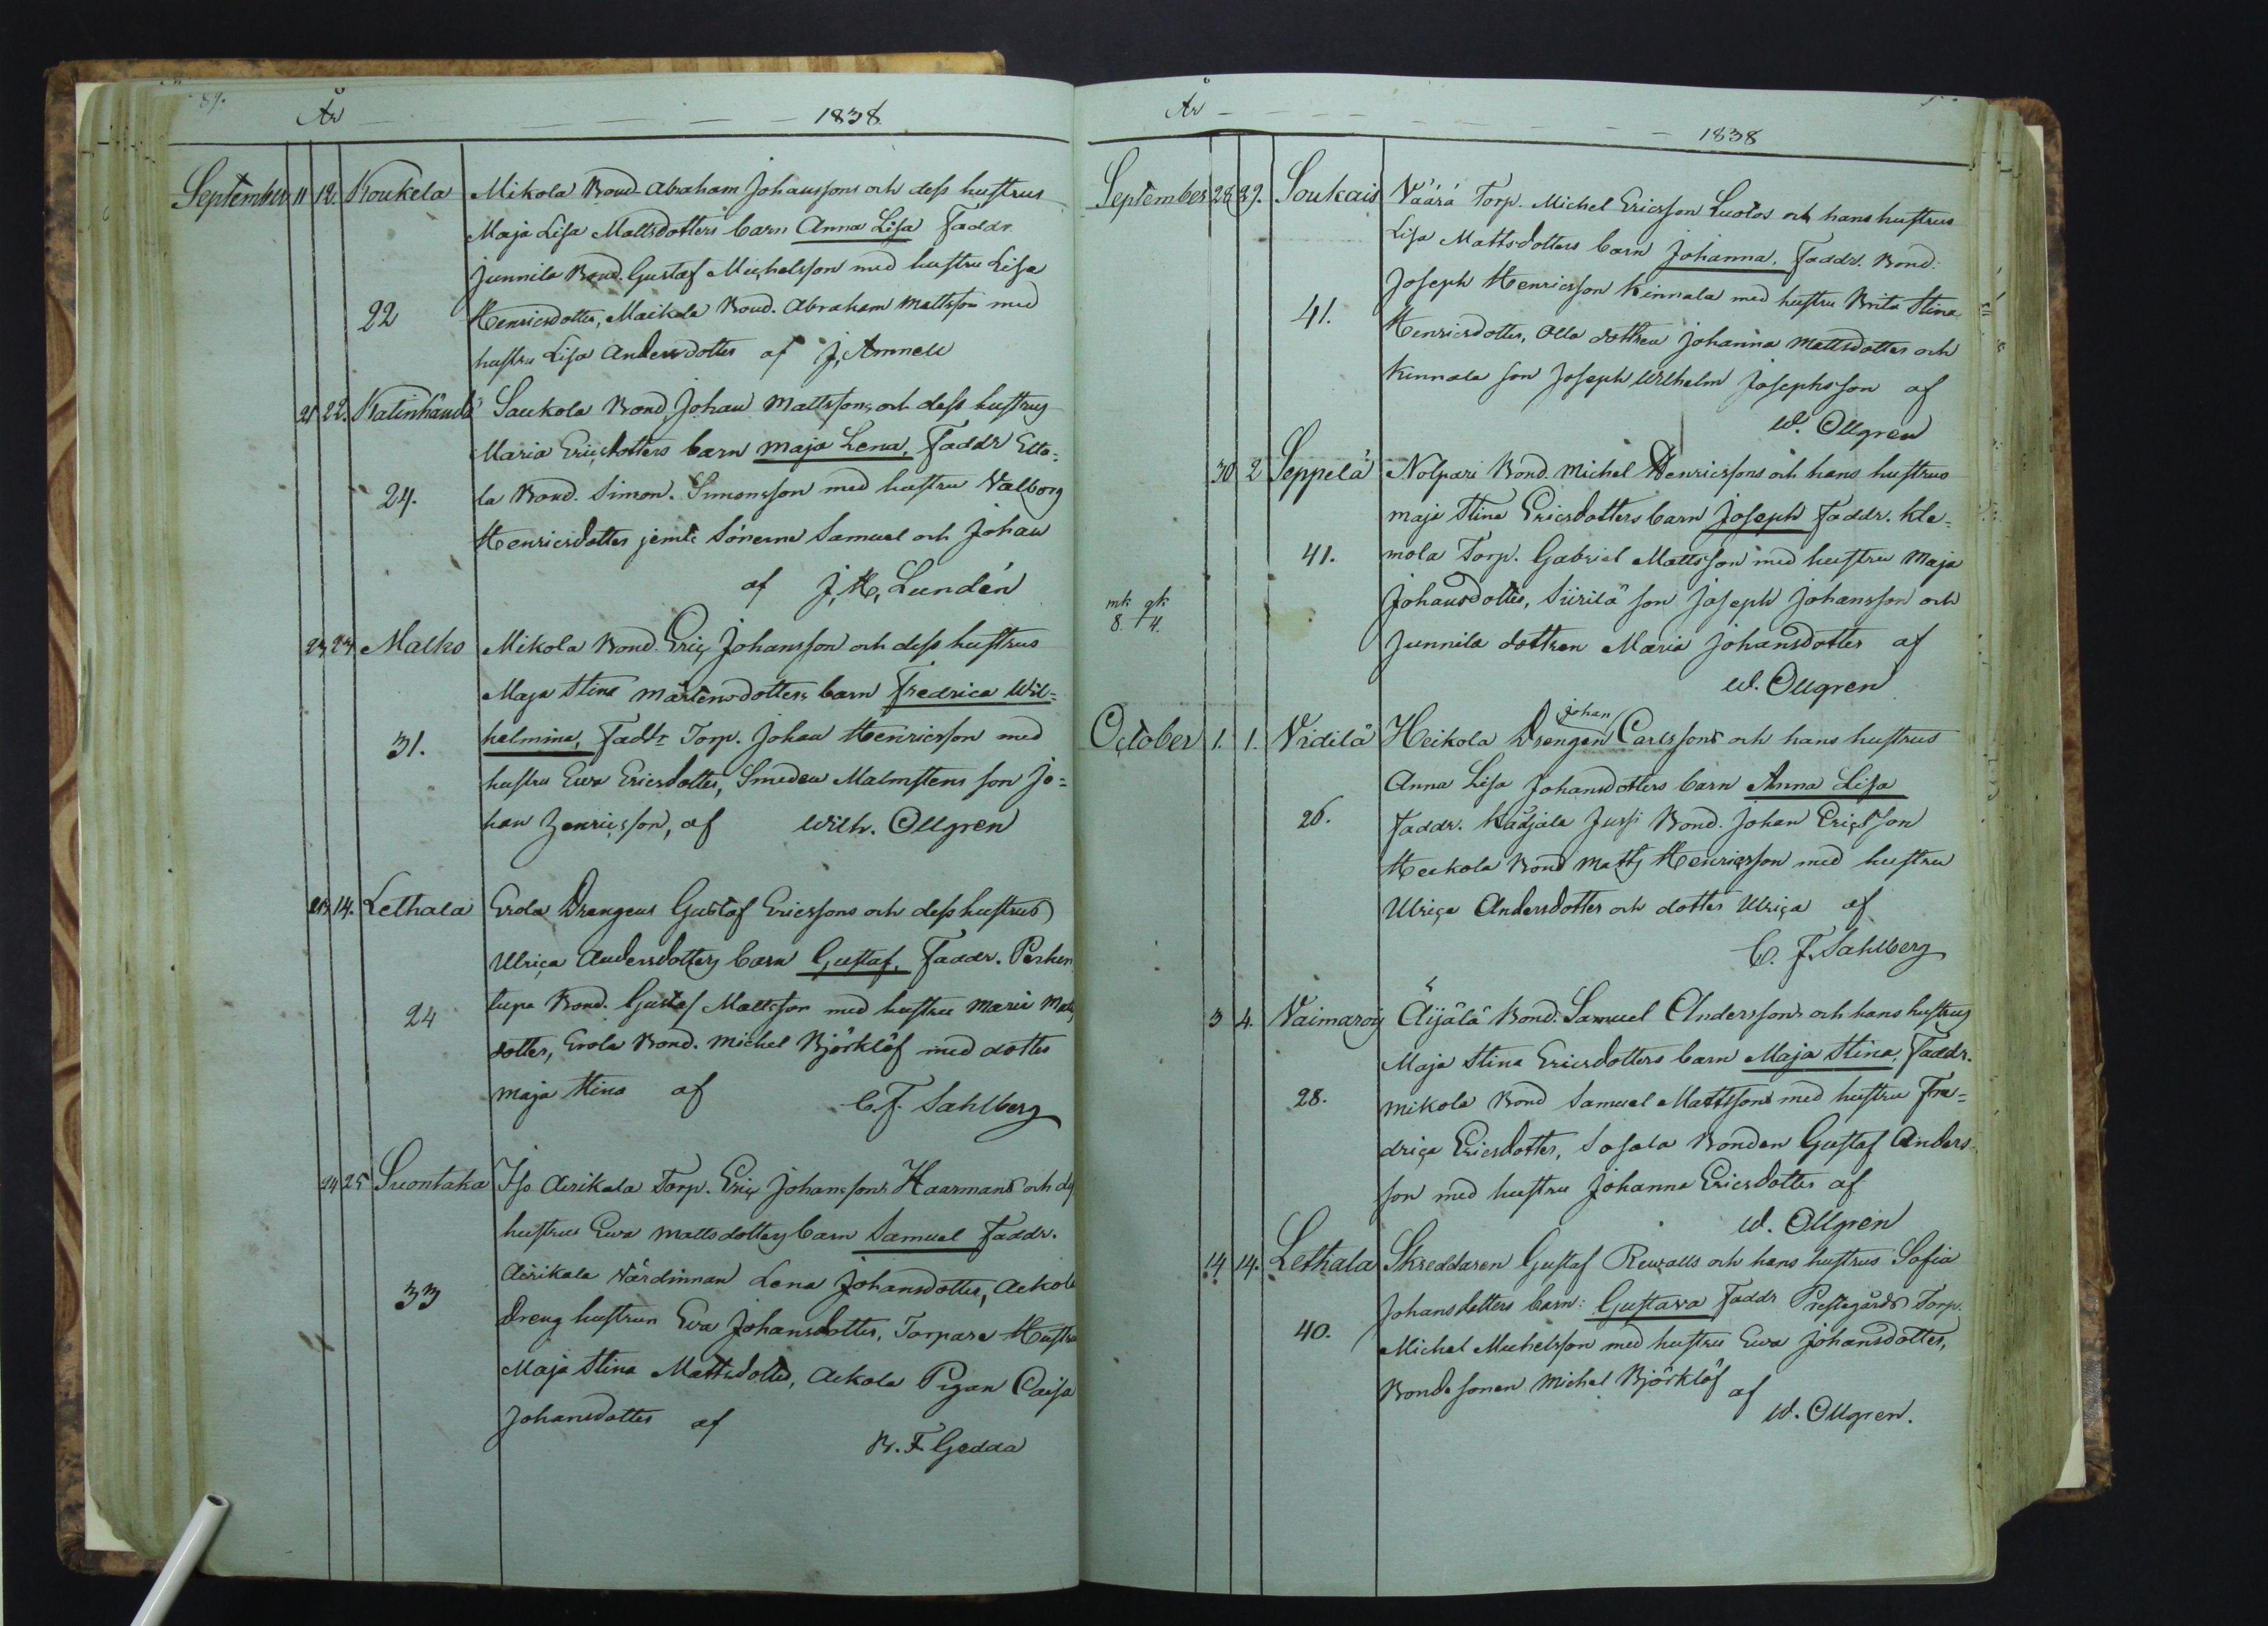 89.
År 1838
September 11 12. Koukela Mikola Bond. Abraham Johanssons och dess hustrus
Maja Lisa Mattsdotters barn Anna Lisa Faddr.
Junnila Bond. Gustaf Michelsson med hustru Lisa
22 Henricsdotter, Maikola Bond. Abraham Mattsson med
hustru Lisa Andersdotter af J. Amnell
21 22. Katinhändä Saukola Bond Johan Mattssons och dess hustrus
Maria Ericsdotters barn Maja Lena, Faddr Etto=
24. la Bond. Simon Simonsson med hustru Valborg
Henricsdotter jemte Sönerne Samuel och Johan
af J. H. Lundén
23 24 Malko Mikola Bond. Eric Johansson och dess hustrus
Maja Stina Mårtensdotters barn Fredrica Wil=
31. helmina, Faddr Torp. Johan Henricsson med
hustru Ewa Ericsdotter, Smeden Malmstens son Jo=
han Henricsson, af Wilh. Ollgren
14. Lethala Erola Drengens Gustaf Ericssons och dess hustrus
Ulrica Andersdotters barn Gustaf, Faddr.
24 Bond. Gustaf Mattsson med hustru Maria Matts
dotter, Erola Bond. Michel Björklöf med dotter
Maja Stina af C. F. Sahlberg
24 25 Suontaka Iso Äerikala Torp. Eric Johanssons Haarmans och dess
hustrus Ewa Mattsdotters barn Samuel Faddr.
Äerikala Värdinnan Lena Johansdotter, Ackola
33 Dreng hustrun Eva Johansdotter, Torpare Hustru
Maja Stina Mattsdotter, Ackola Pigan Caisa
Johansdotter af
B. F. Gedda
År 1838
September 28 29. Soukais Väärä Torp. Michel Ericsson Luotos och hans hustrus
Lisa Mattsdotters barn Johanna. Faddr. Bond.
Joseph Henricsson Kinnala med hustru Brita Stina
41. Henricsdotter, Olla dottren Johanna Mattsdotter och
Kinnala son Joseph Wilhelm Josephsson af
W. Ollgren
30 2 Seppelä Nolpari Bond. Michel Henricssons och hans hustrus
Maja Stina Ericsdotters barn Joseph Faddr. Kle=
41. mola Torp. Gabriel Mattsson med hustru Maja
Johansdotter, Siirilä son Joseph Johansson och
mk gk
8. 4.
Junnila dottren Maria Johansdotter af
W. Ollgren
Johan
October 1. 1. Vidilä Heikola Drengen Carlssons och hans hustrus
Anna Lisa Johansdotters barn Anna Lisa
26. Faddr. Kädjälä Jussi Bond. Johan Ericsson
Heikola Bond Matts Henricsson med hustru
Ulrica Andersdotter och dotter Ulrica af
C. F. Sahlberg
3 4. Vaimaroij Äijälä Bond. Samuel Anderssons och hans hustrus
Maja Stina Ericsdotters barn Maja Stina, Faddr.
28. Mikola Bond Samuel Mattsson med hustru Fre=
drica Ericsdotter, Sasala Bonden Gustaf Anders=
son med hustru Johanna Ericsdotter af
W. Ollgren
14 14. Lethala Skreddaren Gustaf Rewalls och hans hustrus Sofia
Johansdotters barn: Gustava Faddr Prestegårds Torp.
40. Michel Michelsson med hustru Ewa Johansdotter,
Bonde sonen Michel Björklöf af
W. Ollgren.